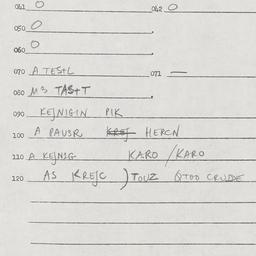 041 O 042 O
050 O
060 O
070 A TESTL 071 —
080 M3 TAST
090 KEJNIGIN PIK
100 A PAUSR HERCN
110 A KEJNIG KARO / KARO
120 AS KREJC ) TOUZ